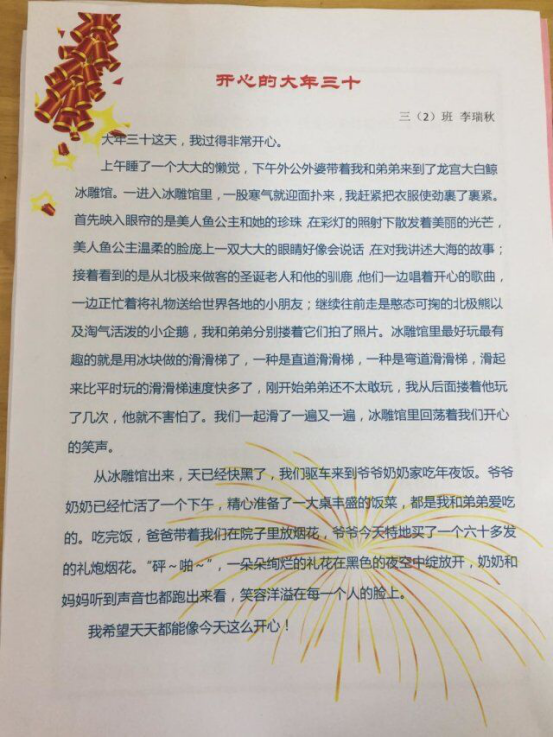 开心的大年三十
三（2）班 李瑞秋
大年三十这天，我过得非常开心。
上午睡了一个大大的懒觉，下午外公外婆带着我和弟弟来到了龙宫大白鲸
冰雕馆。一进入冰雕馆里，一股寒气就迎面扑来，我赶紧把衣服使劲裹了裹紧。
首先映入眼帘的是美人鱼公主和她的珍珠,在彩灯的照射下散发着美丽的光芒，
美人鱼公主温柔的脸庞上一双大大的眼睛好像会说话,在对我讲述大海的故事；
接着看到的是从北极来做客的圣诞老人和他的驯鹿,他们一边唱着开心的歌曲，
一边正忙着将礼物送给世界各地的小朋友；继续往前走是憨态可掬的北极熊以
及淘气活泼的小企鹅，我和弟弟分别搂着它们拍了照片。冰雕馆里最好玩最有
趣的就是用冰块做的滑滑梯了，一种是直道滑滑梯，一种是弯道滑滑梯，滑起
来比平时玩的滑滑梯速度快多了，刚开始弟弟还不太敢玩，我从后面搂着他玩
了几次，他就不害怕了。我们一起滑了一遍又一遍，冰雕馆里回荡着我们开心
的笑声。
从冰雕馆出来，天已经快黑了，我们驱车来到爷爷奶奶家吃年夜饭。爷爷
奶奶已经忙活了一个下午，精心准备了一大桌丰盛的饭菜，都是我和弟弟爱吃
的。吃完饭，爸爸带着我们在院子里放烟花，爷爷今天特地买了一个六十多发
的礼炮烟花。“砰～啪～”，一朵朵绚烂的礼花在黑色的夜空中绽放开，奶奶和
妈妈听到声音也都跑出来看，笑容洋溢在每一个人的脸上。
我希望天天都能像今天这么开心！